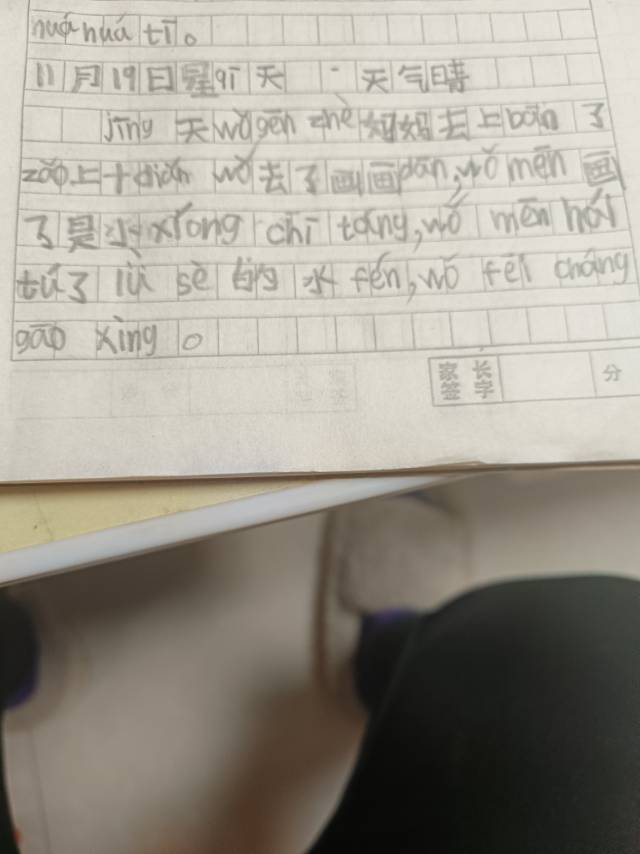 huá huá tī。
11月19日星qī天 天气晴
jīng天wǒgēn zhè妈妈去上bān了
zǎo上十diǎn wǒ去了画画bān,wǒ mēn画
了是小xióng chī táng,wǒ mēn hái
tú了lǜ sè的水fěn,wǒ fēi cháng
gāo xìng。
家长
签字
分